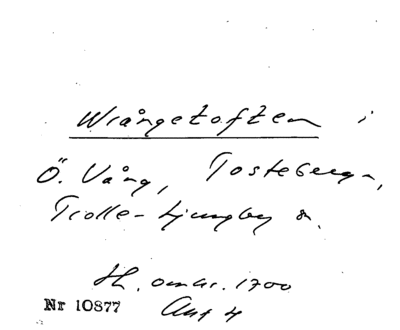 Wrångetoften i
Ö. Vång, Tosteberga,
Trolle-Ljungby sn.
H. omkr. 1700
Nr 10877 Avs 4